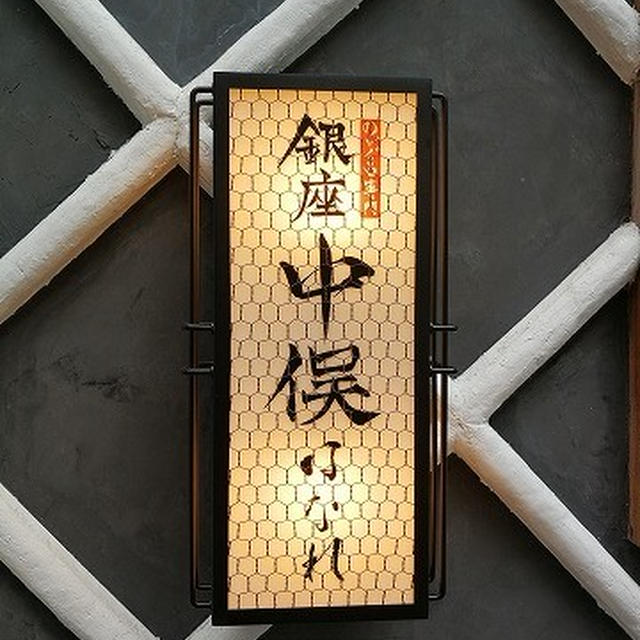 のどぐろ専門
銀座
中俣
はなれ